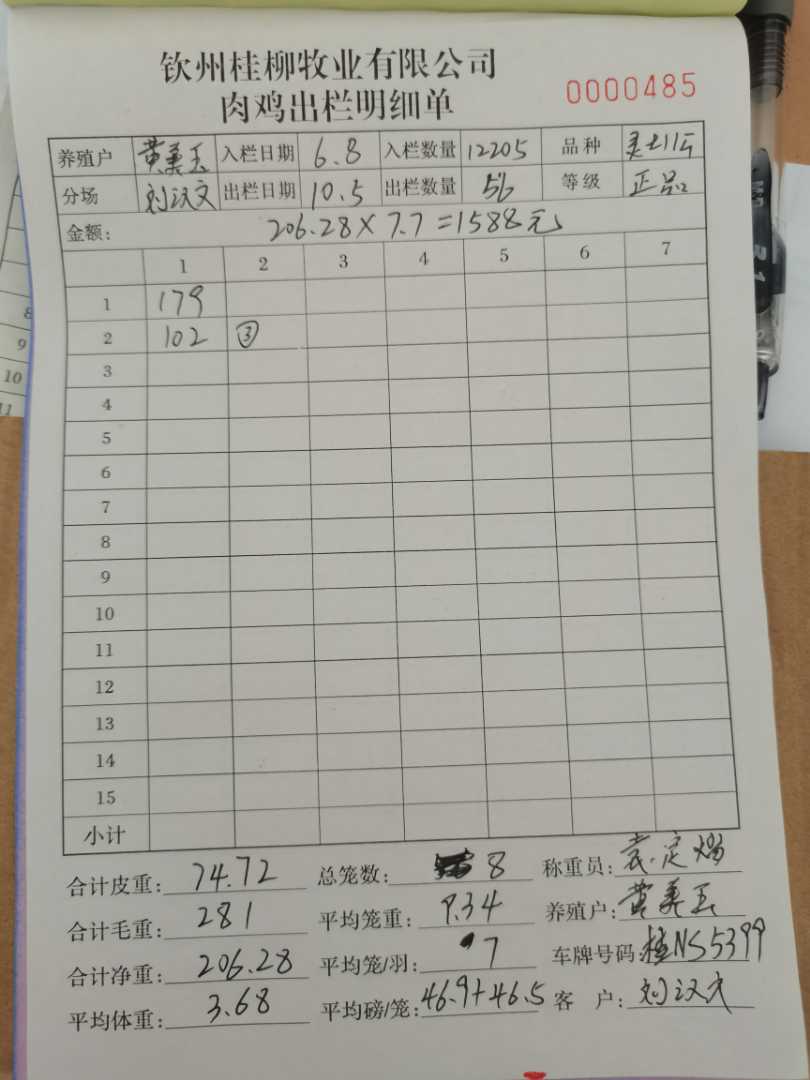 钦州桂柳牧业有限公司
肉鸡出栏明细单
0000485
养殖户 黄美玉 入栏日期 6.8 入栏数量 12205 品种
分场 刘汉文 出栏日期 10.5 出栏数量 56 等级 正品
金额: 206.28×7.7=1588元
1 2 3 4 5 6 7
1 179
2 102 ③
3
4
5
6
7
8
9
10
11
12
13
14
15
小计
合计皮重: 74.72 总笼数: 8 称重员: 袁定
合计毛重: 281 平均笼重: 9.34 养殖户: 黄美玉
合计净重: 206.28 平均笼/羽: 7 车牌号码: 桂NS5399
平均体重: 3.68 平均磅/笼: 46.9+46.5 客户: 刘汉文
8
9
10
11